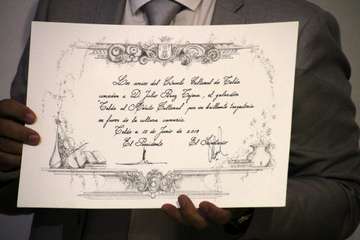 Los socios del Círculo Cultural de Telde
conceden a D. Julio Pérez Tejera, el galardón
Telde al Mérito Cultural, por su brillante trayectoria
en favor de la cultura canaria.
Telde a 15 de Junio de 2018
El Presidente El Secretario